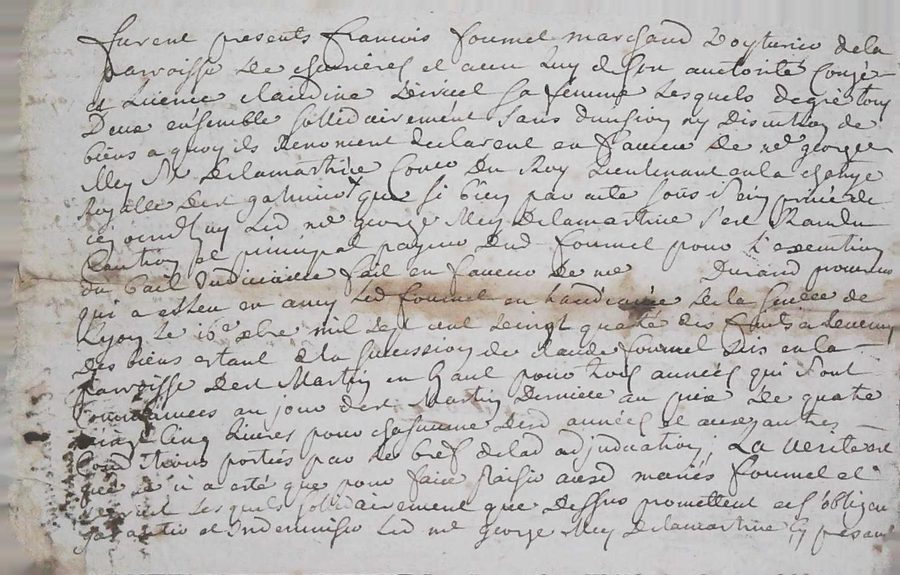 furent presents francois fournel marchand Voyturier dela
parroisse de chenieres et avec luy de son authorité Congé
et Licence claudine Deriveel sa femme Lesquels de gré tous
Deux ensemble sollidairement sans division ny discution de
biens a quoy ils Renoncent declarent en faveur de me george
Mey Delamartine Conr Du Roy Lieutenant en la
Royalle dest galmier que si bien par acte sous sein privé de
cejourdhuy Led me george Mey Delamartine s'est Randu
Caution et principal payeur dud fournel pour l'execution
du bail Judiciaire fait en faveur de me Durand procureur
qui a esleu en amy Led fournel en de la de
Lyon le 16e xbre mil sept cent vingt quatre des fruits a
des biens estant de la succession de claude fournel sis en la
parroisse dest Martin en haut pour trois années qui sont
au jour dest Martin derniere au prix de quatre
vingt cinq livres pour chascune desd années et aux autres
Conditions portées par le bref delad adjudication, La verité est
que ce n'a esté que pour faire plaisir ausd mariés fournel et
Lesquels solidairement que dessus promettent et s'obligent
garantir et Indemniser Led me george Mey Delamartine present